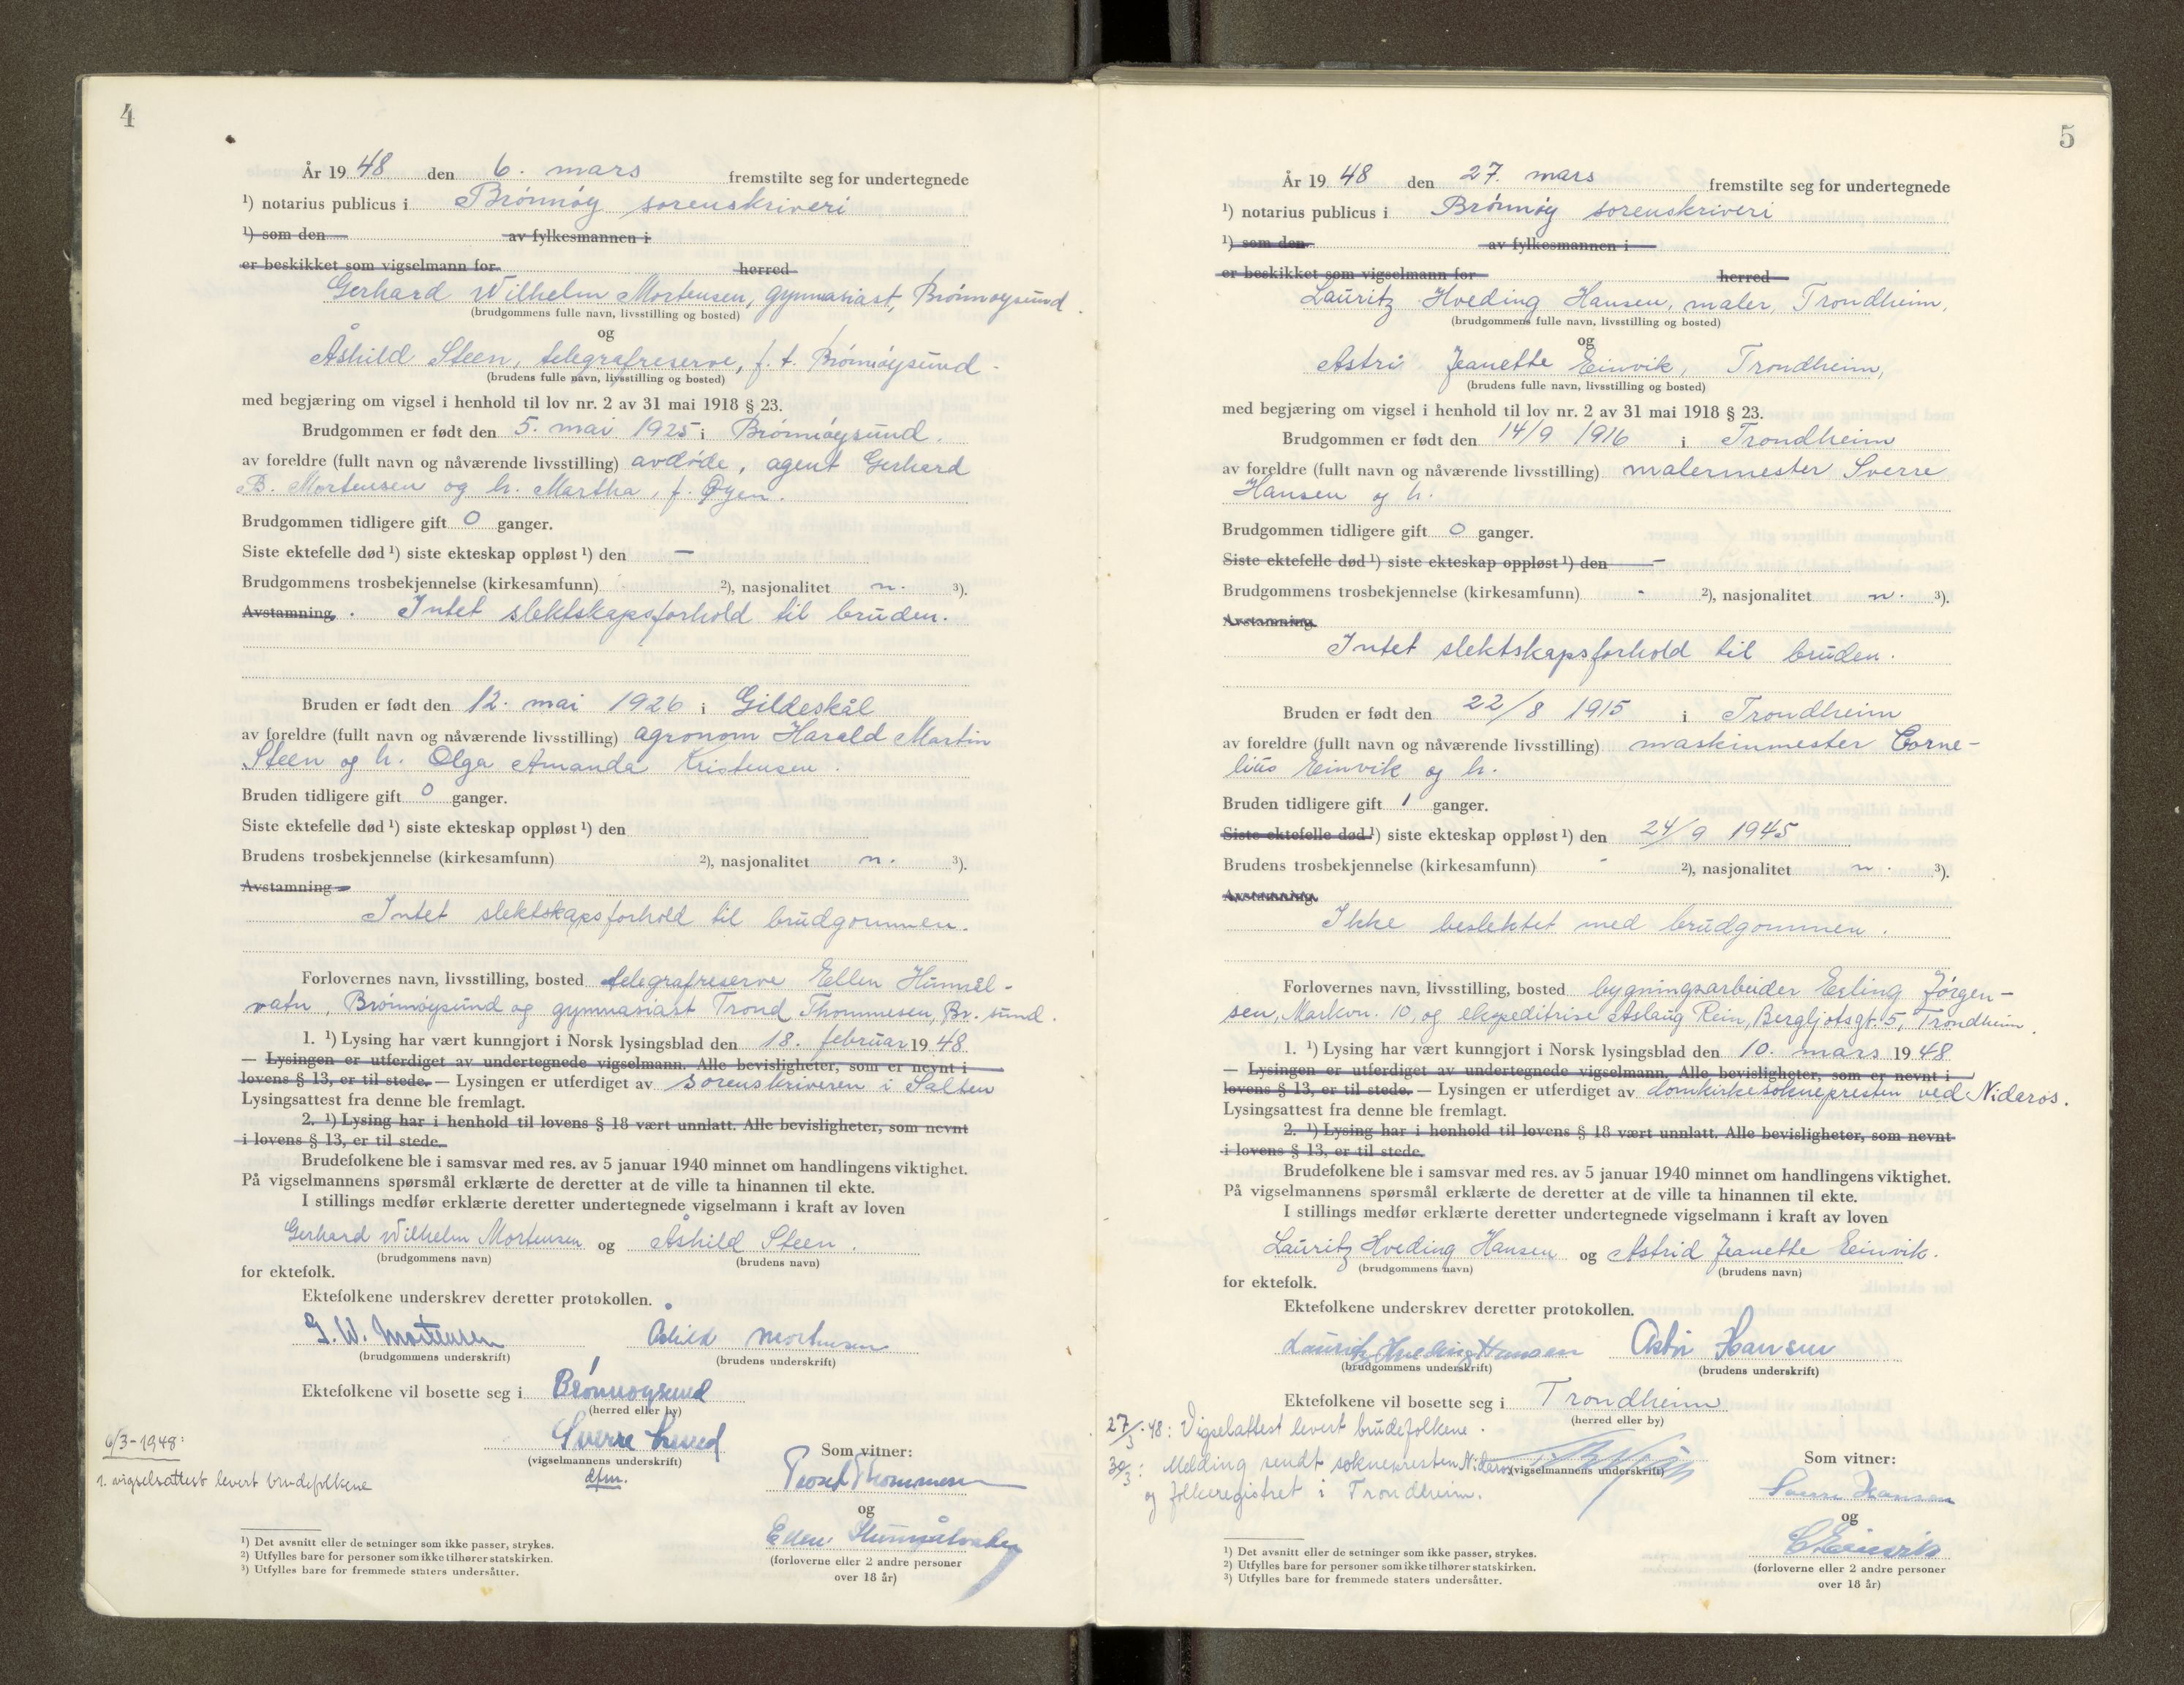 4
År 1948 den 6. mars fremstilte seg for undertegnede
¹) notarius publicus i Brönnöy sorenskriveri
¹) som den av fylkesmannen i
er beskikket som vigselmann for herred
Gerhard Wilhelm Mortensen, gymnasiast, Brönnöysund.
(brudgommens fulle navn, livsstilling og bosted)
og
Åshild Steen, telegrafreserve, f. t. Brönnöysund.
(brudens fulle navn, livsstilling og bosted)
med begjæring om vigsel i henhold til lov nr. 2 av 31 mai 1918 § 23.
Brudgommen er født den 5. mai 1925 i Brönnöysund.
av foreldre (fullt navn og nåværende livsstilling) avdöde, agent Gerhard
B. Mortensen og h. Martha, f. Øyen.
Brudgommen tidligere gift 0 ganger.
Siste ektefelle død ¹) siste ekteskap oppløst ¹) den —
Brudgommens trosbekjennelse (kirkesamfunn) ²), nasjonalitet n. ³).
Avstamning. Intet slektskapsforhold til bruden.
Bruden er født den 12. mai 1926 i Gildeskål
av foreldre (fullt navn og nåværende livsstilling) agronom Harald Martin
Steen og h. Olga Amanda Kristensen.
Bruden tidligere gift 0 ganger.
Siste ektefelle død ¹) siste ekteskap oppløst ¹) den
Brudens trosbekjennelse (kirkesamfunn) ²), nasjonalitet n. ³).
Avstamning
Intet slektskapsforhold til brudgommen.
Forlovernes navn, livsstilling, bosted telegrafreserve Ellen Hummel-
vatn, Brönnöysund og gymnasiast Trond Thommesen, Br.sund.
1. ¹) Lysing har vært kunngjort i Norsk lysingsblad den 18. februar 1948
— Lysingen er utferdiget av undertegnede vigselmann. Alle bevisligheter, som er nevnt i
lovens § 13, er til stede. — Lysingen er utferdiget av sorenskriveren i Salten
Lysingsattest fra denne ble fremlagt.
2. ¹) Lysing har i henhold til lovens § 18 vært unnlatt. Alle bevisligheter, som nevnt
i lovens § 13, er til stede.
Brudefolkene ble i samsvar med res. av 5 januar 1940 minnet om handlingens viktighet.
På vigselmannens spørsmål erklærte de deretter at de ville ta hinannen til ekte.
I stillings medfør erklærte deretter undertegnede vigselmann i kraft av loven
Gerhard Wilhelm Mortensen og Åshild Steen.
(brudgommens navn) (brudens navn)
for ektefolk.
Ektefolkene underskrev deretter protokollen.
G. W. Mortensen Åshild Mortensen
(brudgommens underskrift) (brudens underskrift)
Ektefolkene vil bosette seg i Brönnoysund
(herred eller by)
Sverre
(vigselmannens underskrift)
dfm.
6/3-1948:
1. vigselsattest levert brudefolkene
Som vitner:
Trond Thommesen
og
Ellen
(forloverne eller 2 andre personer
over 18 år)
¹) Det avsnitt eller de setninger som ikke passer, strykes.
²) Utfylles bare for personer som ikke tilhører statskirken.
³) Utfylles bare for fremmede staters undersåtter.
5
År 1948 den 27. mars fremstilte seg for undertegnede
¹) notarius publicus i Brönnöy sorenskriveri
¹) som den av fylkesmannen i
er beskikket som vigselmann for herred
Lauritz Hveding Hansen, maler, Trondheim,
(brudgommens fulle navn, livsstilling og bosted)
og
Astri Jeanette Einvik, Trondheim,
(brudens fulle navn, livsstilling og bosted)
med begjæring om vigsel i henhold til lov nr. 2 av 31 mai 1918 § 23.
Brudgommen er født den 14/9 1916 i Trondheim
av foreldre (fullt navn og nåværende livsstilling) malermester Sverre
Hansen og h.
Brudgommen tidligere gift 0 ganger.
Siste ektefelle død ¹) siste ekteskap oppløst ¹) den —
Brudgommens trosbekjennelse (kirkesamfunn) - ²), nasjonalitet n. ³).
Avstamning.
Intet slektskapsforhold til bruden.
Bruden er født den 22/8 1915 i Trondheim
av foreldre (fullt navn og nåværende livsstilling) maskinmester Corne-
lius Einvik og h.
Bruden tidligere gift 1 ganger.
Siste ektefelle død ¹) siste ekteskap oppløst ¹) den 24/9 1945
Brudens trosbekjennelse (kirkesamfunn) - ²), nasjonalitet n. ³).
Avstamning.
Ikke beslektet med brudgommen.
Forlovernes navn, livsstilling, bosted bygningsarbeider Erling Jörgen-
sen, Markvn. 10, og ekspeditrise Aslaug Rein, Bergljotsgt. 5, Trondheim.
1. ¹) Lysing har vært kunngjort i Norsk lysingsblad den 10. mars 1948
— Lysingen er utferdiget av undertegnede vigselmann. Alle bevisligheter, som er nevnt i
lovens § 13, er til stede. — Lysingen er utferdiget av domkirkesoknepresten ved Nidaros.
Lysingsattest fra denne ble fremlagt.
2. ¹) Lysing har i henhold til lovens § 18 vært unnlatt. Alle bevisligheter, som nevnt
i lovens § 13, er til stede.
Brudefolkene ble i samsvar med res. av 5 januar 1940 minnet om handlingens viktighet.
På vigselmannens spørsmål erklærte de deretter at de ville ta hinannen til ekte.
I stillings medfør erklærte deretter undertegnede vigselmann i kraft av loven
Lauritz Hveding Hansen og Astrid Jeanette Einvik.
(brudgommens navn) (brudens navn)
for ektefolk.
Ektefolkene underskrev deretter protokollen.
Lauritz Hveding Hansen Astri Hansen
(brudgommens underskrift) (brudens underskrift)
Ektefolkene vil bosette seg i Trondheim
(herred eller by)
27/3-48: Vigselattest levert brudefolkene.
30/3: Melding sendt soknepresten Nidaros
(vigselmannens underskrift)
og folkeregistret i Trondheim.
Som vitner:
Sverre Hansen
og
C Einvik
(forloverne eller 2 andre personer
over 18 år)
¹) Det avsnitt eller de setninger som ikke passer, strykes.
²) Utfylles bare for personer som ikke tilhører statskirken.
³) Utfylles bare for fremmede staters undersåtter.